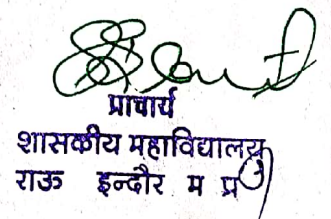 प्राचार्य
शासकीय महाविद्यालय
राऊ इन्दौर म प्र